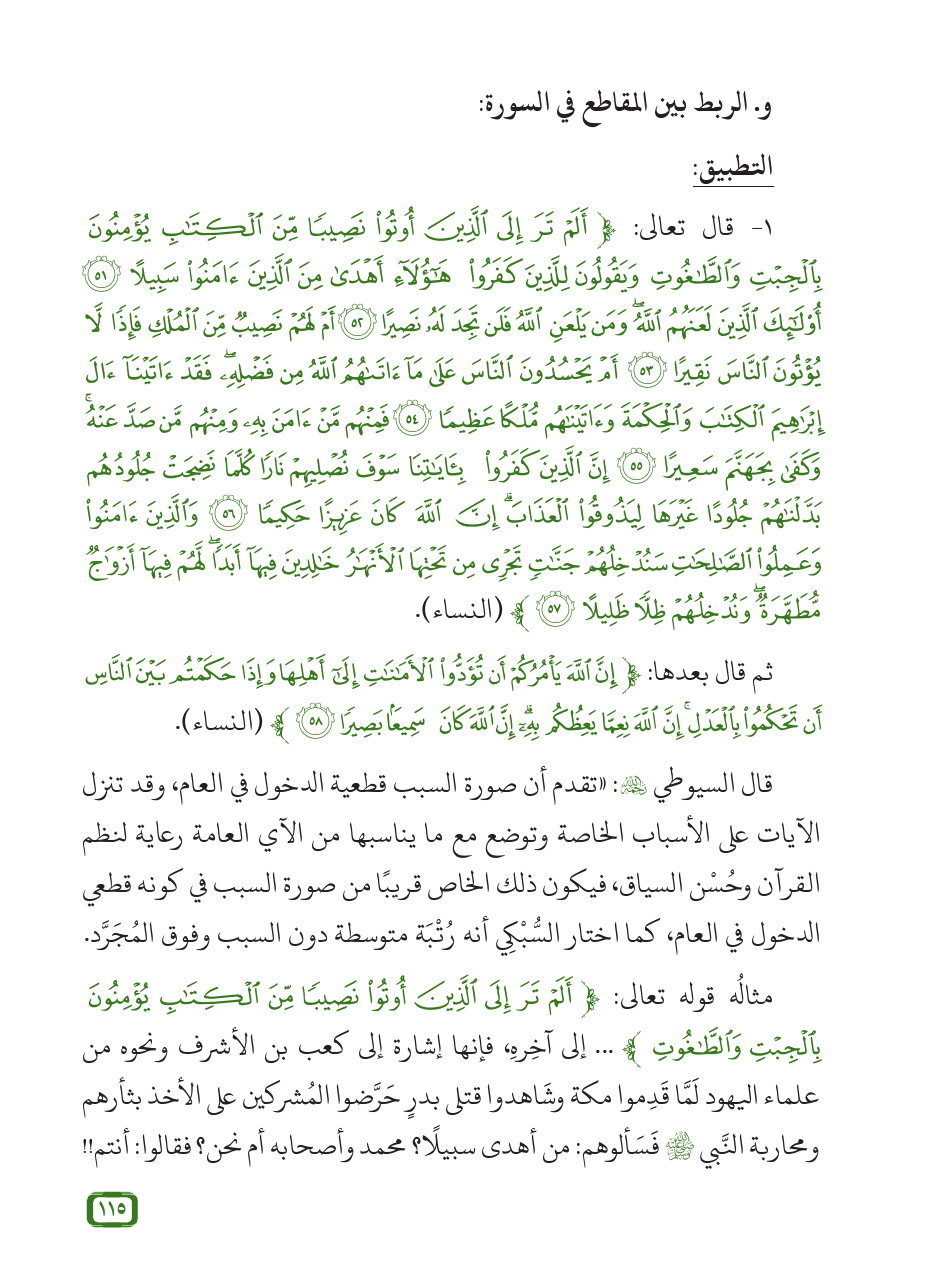 و. الربط بين المقاطع في السورة:
التطبيق:
١- قال تعالى: ﴿ أَلَمْ تَرَ إِلَى ٱلَّذِينَ أُوتُوا۟ نَصِيبًا مِّنَ ٱلْكِتَٰبِ يُؤْمِنُونَ
بِٱلْجِبْتِ وَٱلطَّٰغُوتِ وَيَقُولُونَ لِلَّذِينَ كَفَرُوا۟ هَٰٓؤُلَآءِ أَهْدَىٰ مِنَ ٱلَّذِينَ ءَامَنُوا۟ سَبِيلًا ٥١
أُو۟لَٰٓئِكَ ٱلَّذِينَ لَعَنَهُمُ ٱللَّهُ ۖ وَمَن يَلْعَنِ ٱللَّهُ فَلَن تَجِدَ لَهُۥ نَصِيرًا ٥٢ أَمْ لَهُمْ نَصِيبٌ مِّنَ ٱلْمُلْكِ فَإِذًا لَّا
يُؤْتُونَ ٱلنَّاسَ نَقِيرًا ٥٣ أَمْ يَحْسُدُونَ ٱلنَّاسَ عَلَىٰ مَآ ءَاتَىٰهُمُ ٱللَّهُ مِن فَضْلِهِۦ ۖ فَقَدْ ءَاتَيْنَآ ءَالَ
إِبْرَٰهِيمَ ٱلْكِتَٰبَ وَٱلْحِكْمَةَ وَءَاتَيْنَٰهُم مُّلْكًا عَظِيمًا ٥٤ فَمِنْهُم مَّنْ ءَامَنَ بِهِۦ وَمِنْهُم مَّن صَدَّ عَنْهُ ۚ
وَكَفَىٰ بِجَهَنَّمَ سَعِيرًا ٥٥ إِنَّ ٱلَّذِينَ كَفَرُوا۟ بِـَٔايَٰتِنَا سَوْفَ نُصْلِيهِمْ نَارًا كُلَّمَا نَضِجَتْ جُلُودُهُم
بَدَّلْنَٰهُمْ جُلُودًا غَيْرَهَا لِيَذُوقُوا۟ ٱلْعَذَابَ ۗ إِنَّ ٱللَّهَ كَانَ عَزِيزًا حَكِيمًا ٥٦ وَٱلَّذِينَ ءَامَنُوا۟
وَعَمِلُوا۟ ٱلصَّٰلِحَٰتِ سَنُدْخِلُهُمْ جَنَّٰتٍ تَجْرِى مِن تَحْتِهَا ٱلْأَنْهَٰرُ خَٰلِدِينَ فِيهَآ أَبَدًا ۖ لَّهُمْ فِيهَآ أَزْوَٰجٌ
مُّطَهَّرَةٌ ۖ وَنُدْخِلُهُمْ ظِلًّا ظَلِيلًا ٥٧ ﴾ (النساء).
ثم قال بعدها: ﴿ إِنَّ ٱللَّهَ يَأْمُرُكُمْ أَن تُؤَدُّوا۟ ٱلْأَمَٰنَٰتِ إِلَىٰٓ أَهْلِهَا وَإِذَا حَكَمْتُم بَيْنَ ٱلنَّاسِ
أَن تَحْكُمُوا۟ بِٱلْعَدْلِ ۚ إِنَّ ٱللَّهَ نِعِمَّا يَعِظُكُم بِهِۦٓ ۗ إِنَّ ٱللَّهَ كَانَ سَمِيعًۢا بَصِيرًا ٥٨ ﴾ (النساء).
قال السيوطي رحمه الله: «تقدم أن صورة السبب قطعية الدخول في العام، وقد تنزل
الآيات على الأسباب الخاصة وتوضع مع ما يناسبها من الآي العامة رعاية لنظم
القرآن وحُسْن السياق، فيكون ذلك الخاص قريبًا من صورة السبب في كونه قطعي
الدخول في العام، كما اختار السُّبْكِي أنه رُتْبَة متوسطة دون السبب وفوق المُجَرَّد.
مثالُه قوله تعالى: ﴿ أَلَمْ تَرَ إِلَى ٱلَّذِينَ أُوتُوا۟ نَصِيبًا مِّنَ ٱلْكِتَٰبِ يُؤْمِنُونَ
بِٱلْجِبْتِ وَٱلطَّٰغُوتِ ﴾ ... إلى آخِرِهِ، فإنها إشارة إلى كعب بن الأشرف ونحوه من
علماء اليهود لَمَّا قَدِموا مكة وشَاهدوا قتلى بدرٍ حَرَّضوا المُشركين على الأخذ بثأرهم
ومحاربة النَّبي ﷺ فَسَألوهم: من أهدى سبيلًا؟ محمد وأصحابه أم نحن؟ فقالوا: أنتم!!
١١٥